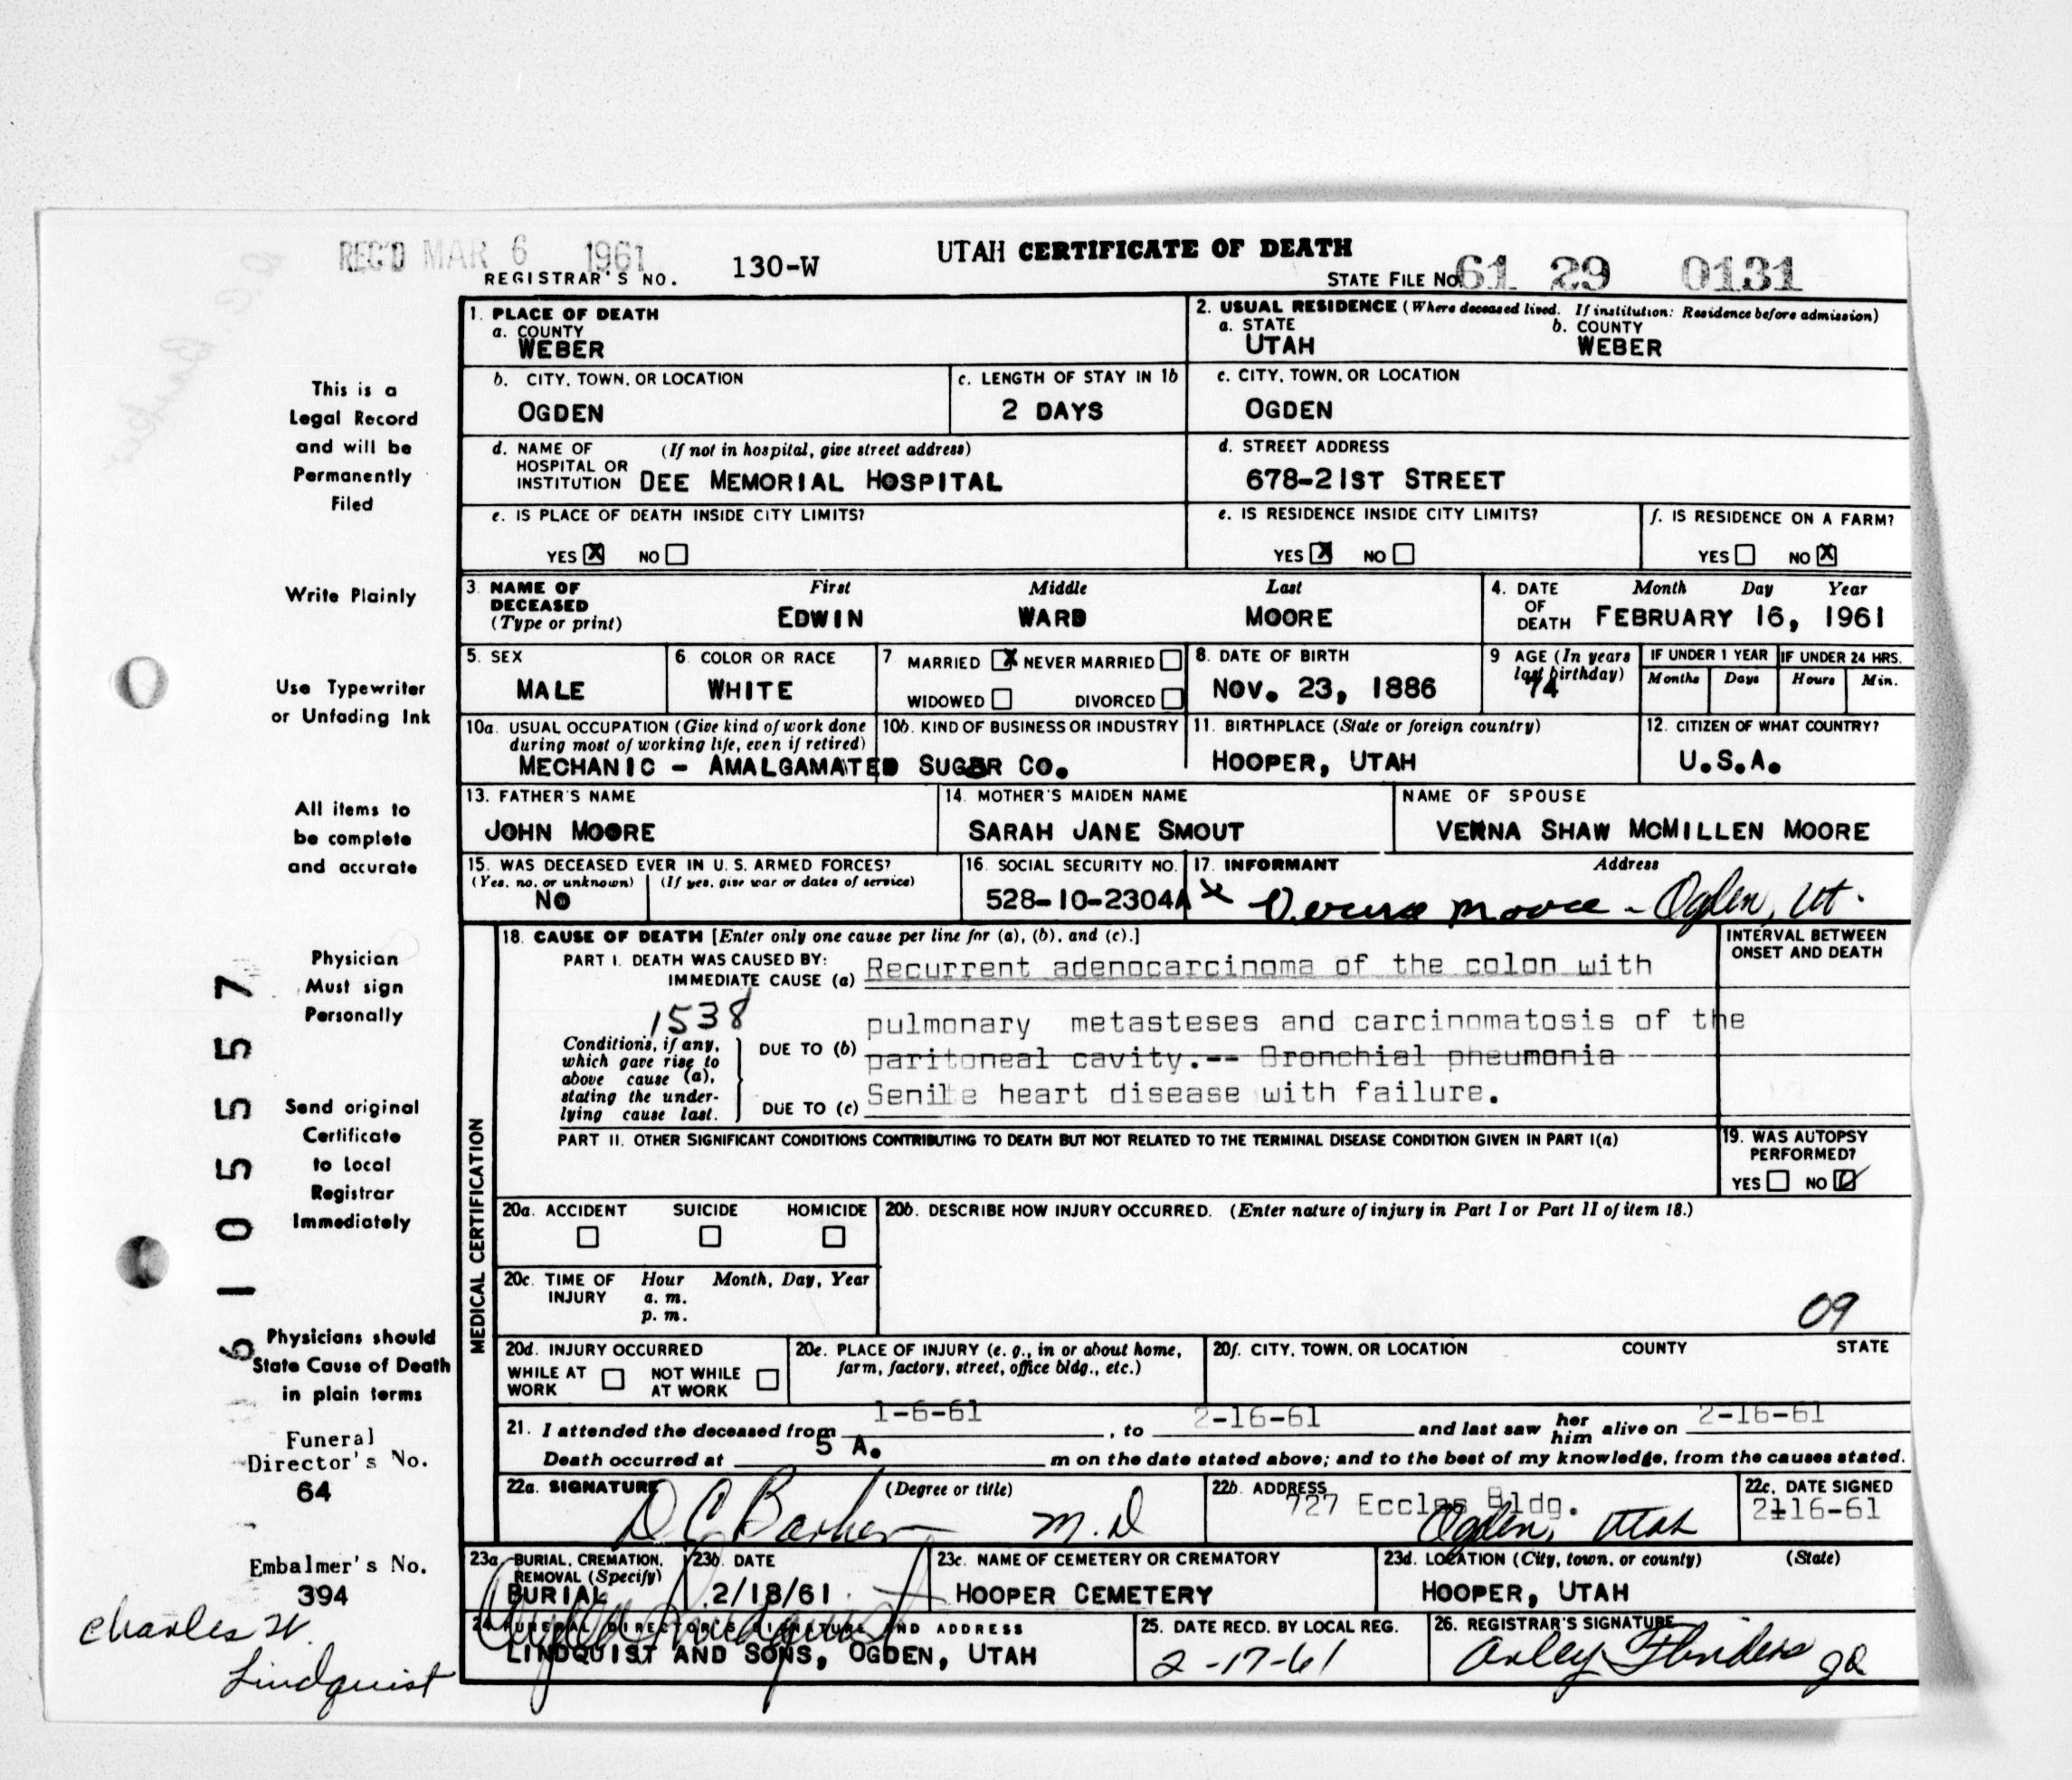 REC'D MAR 6 1961
UTAH CERTIFICATE OF DEATH
REGISTRAR'S NO. 130-W
STATE FILE NO. 61 29 0131
This is a
Legal Record
and will be
Permanently
Filed
Write Plainly
Use Typewriter
or Unfading Ink
All items to
be complete
and accurate
Physician
Must sign
Personally
Send original
Certificate
to Local
Registrar
Immediately
Physicians should
State Cause of Death
in plain terms
Funeral
Director's No.
64
Embalmer's No.
394
Charles W.
Lindquist
61 05557
1. PLACE OF DEATH
a. COUNTY
WEBER
2. USUAL RESIDENCE (Where deceased lived. If institution: Residence before admission)
a. STATE b. COUNTY
UTAH WEBER
b. CITY, TOWN, OR LOCATION
OGDEN
c. LENGTH OF STAY IN 1b
2 DAYS
c. CITY, TOWN, OR LOCATION
OGDEN
d. NAME OF (If not in hospital, give street address)
HOSPITAL OR
INSTITUTION DEE MEMORIAL HOSPITAL
d. STREET ADDRESS
678-21ST STREET
e. IS PLACE OF DEATH INSIDE CITY LIMITS?
YES X NO
e. IS RESIDENCE INSIDE CITY LIMITS?
YES X NO
f. IS RESIDENCE ON A FARM?
YES NO X
3. NAME OF DECEASED (Type or print)
First Middle Last
EDWIN WARD MOORE
4. DATE OF DEATH
Month Day Year
FEBRUARY 16, 1961
5. SEX
MALE
6. COLOR OR RACE
WHITE
7 MARRIED X NEVER MARRIED
WIDOWED DIVORCED
8. DATE OF BIRTH
NOV. 23, 1886
9 AGE (In years
last birthday)
74
IF UNDER 1 YEAR IF UNDER 24 HRS.
Months Days Hours Min.
10a. USUAL OCCUPATION (Give kind of work done
during most of working life, even if retired)
10b. KIND OF BUSINESS OR INDUSTRY
MECHANIC - AMALGAMATED SUGAR CO.
11. BIRTHPLACE (State or foreign country)
HOOPER, UTAH
12. CITIZEN OF WHAT COUNTRY?
U.S.A.
13. FATHER'S NAME
JOHN MOORE
14. MOTHER'S MAIDEN NAME
SARAH JANE SMOUT
NAME OF SPOUSE
VERNA SHAW MCMILLEN MOORE
15. WAS DECEASED EVER IN U. S. ARMED FORCES?
(Yes, no, or unknown) (If yes, give war or dates of service)
NO
16. SOCIAL SECURITY NO.
528-10-2304A
17. INFORMANT Address
x Verna Moore - Ogden, Ut.
MEDICAL CERTIFICATION
18. CAUSE OF DEATH [Enter only one cause per line for (a), (b), and (c).]
INTERVAL BETWEEN
ONSET AND DEATH
PART I. DEATH WAS CAUSED BY:
IMMEDIATE CAUSE (a) Recurrent adenocarcinoma of the colon with
1538
pulmonary metasteses and carcinomatosis of the
Conditions, if any,
which gave rise to
above cause (a),
stating the under-
lying cause last.
DUE TO (b) paritoneal cavity.-- Bronchial pneumonia
DUE TO (c) Senile heart disease with failure.
PART II. OTHER SIGNIFICANT CONDITIONS CONTRIBUTING TO DEATH BUT NOT RELATED TO THE TERMINAL DISEASE CONDITION GIVEN IN PART I(a)
19. WAS AUTOPSY
PERFORMED?
YES NO
20a. ACCIDENT SUICIDE HOMICIDE
20b. DESCRIBE HOW INJURY OCCURRED. (Enter nature of injury in Part I or Part II of item 18.)
20c. TIME OF INJURY
Hour Month, Day, Year
a. m.
p. m.
09
20d. INJURY OCCURRED
WHILE AT WORK NOT WHILE AT WORK
20e. PLACE OF INJURY (e. g., in or about home,
farm, factory, street, office bldg., etc.)
20f. CITY, TOWN, OR LOCATION COUNTY STATE
21. I attended the deceased from 1-6-61, to 2-16-61 and last saw her him alive on 2-16-61
Death occurred at 5 A. m on the date stated above; and to the best of my knowledge, from the causes stated.
22a. SIGNATURE (Degree or title)
D C Barker M.D
22b. ADDRESS
727 Eccles Bldg.
Ogden, Utah
22c. DATE SIGNED
2-16-61
23a. BURIAL, CREMATION,
REMOVAL (Specify)
BURIAL
23b. DATE
2/18/61
23c. NAME OF CEMETERY OR CREMATORY
HOOPER CEMETERY
23d. LOCATION (City, town, or county) (State)
HOOPER, UTAH
24. FUNERAL DIRECTOR'S SIGNATURE AND ADDRESS
LINDQUIST AND SONS, OGDEN, UTAH
25. DATE RECD. BY LOCAL REG.
2-17-61
26. REGISTRAR'S SIGNATURE